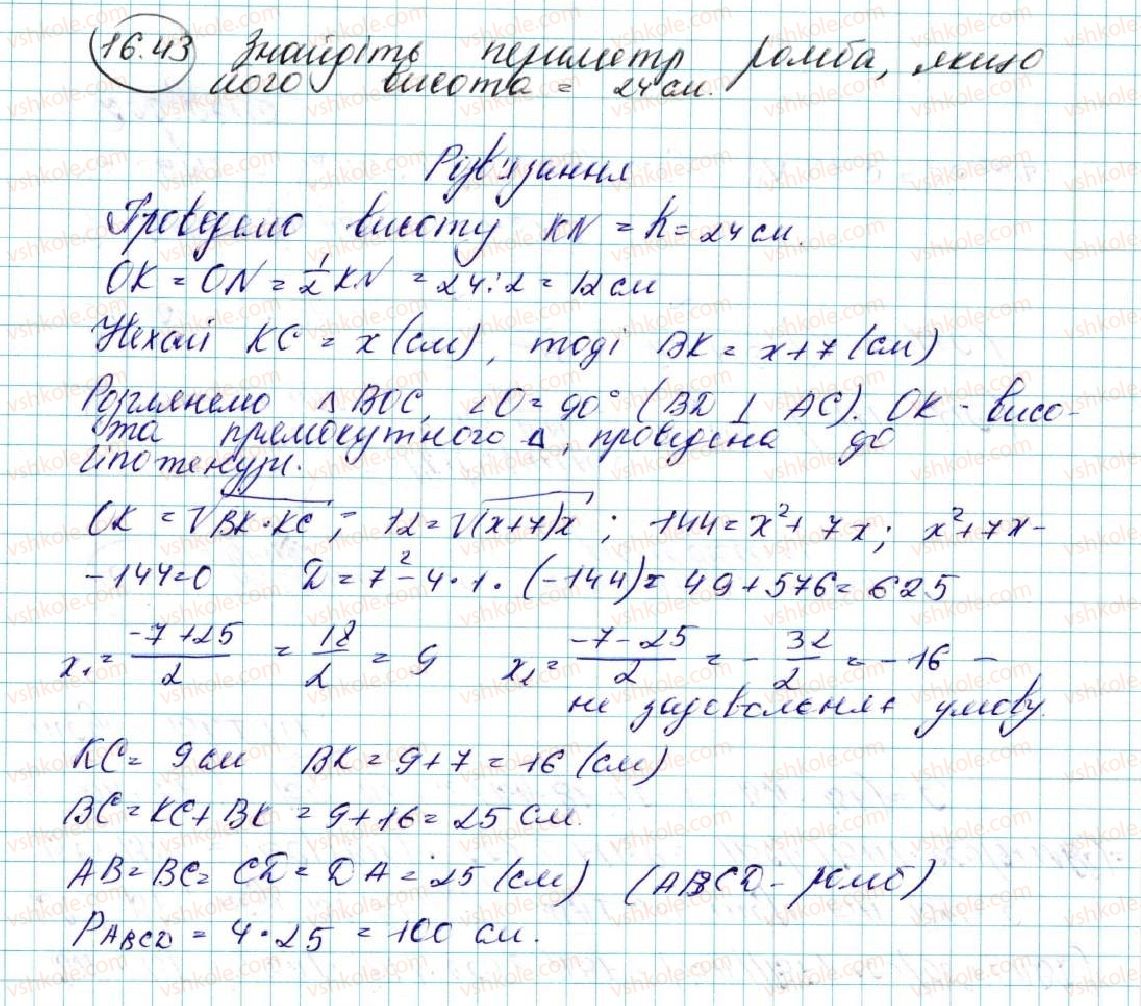 16.43 Знайдіть периметр ромба, якщо
його висота = 24 см.
Розв'язання
Проведемо висоту KN = h = 24 см.
OK = ON = 1/2 KN = 24:2 = 12 см
Нехай KC = x (см), тоді BK = x+7 (см)
Розглянемо △BOC, ∠O = 90° (BD ⊥ AC). OK - висо-
та прямокутного △, проведена до
гіпотенузи.
OK = √BK·KC; 12 = √(x+7)x; 144 = x² + 7x; x² + 7x -
- 144 = 0 D = 7² - 4·1·(-144) = 49 + 576 = 625
x₁ = (-7+25)/2 = 18/2 = 9 x₂ = (-7-25)/2 = -32/2 = -16 -
не задовольняє умову.
KC = 9 см BK = 9+7 = 16 (см)
BC = KC + BK = 9+16 = 25 см.
AB = BC = CD = DA = 25 (см) (ABCD - ромб)
P ABCD = 4·25 = 100 см.